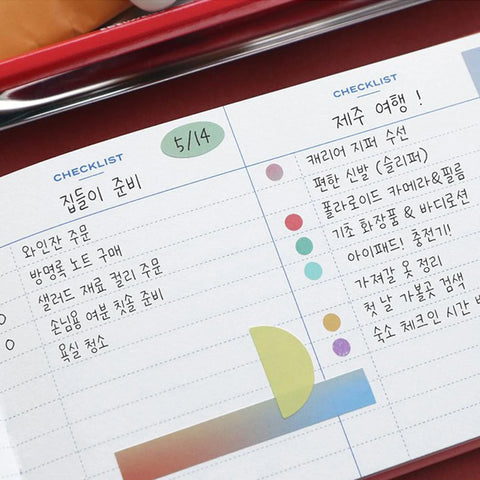 CHECKLIST
5/14
집들이 준비
와인잔 주문
방명록 노트 구매
샐러드 재료 컬리 주문
손님용 여분 칫솔 준비
욕실 청소
CHECKLIST
제주 여행 !
캐리어 지퍼 수선
편한 신발 (슬리퍼)
폴라로이드 카메라&필름
기초 화장품 & 바디로션
아이패드! 충전기!
가져갈 옷 정리
첫 날 가볼곳 검색
숙소 체크인 시간